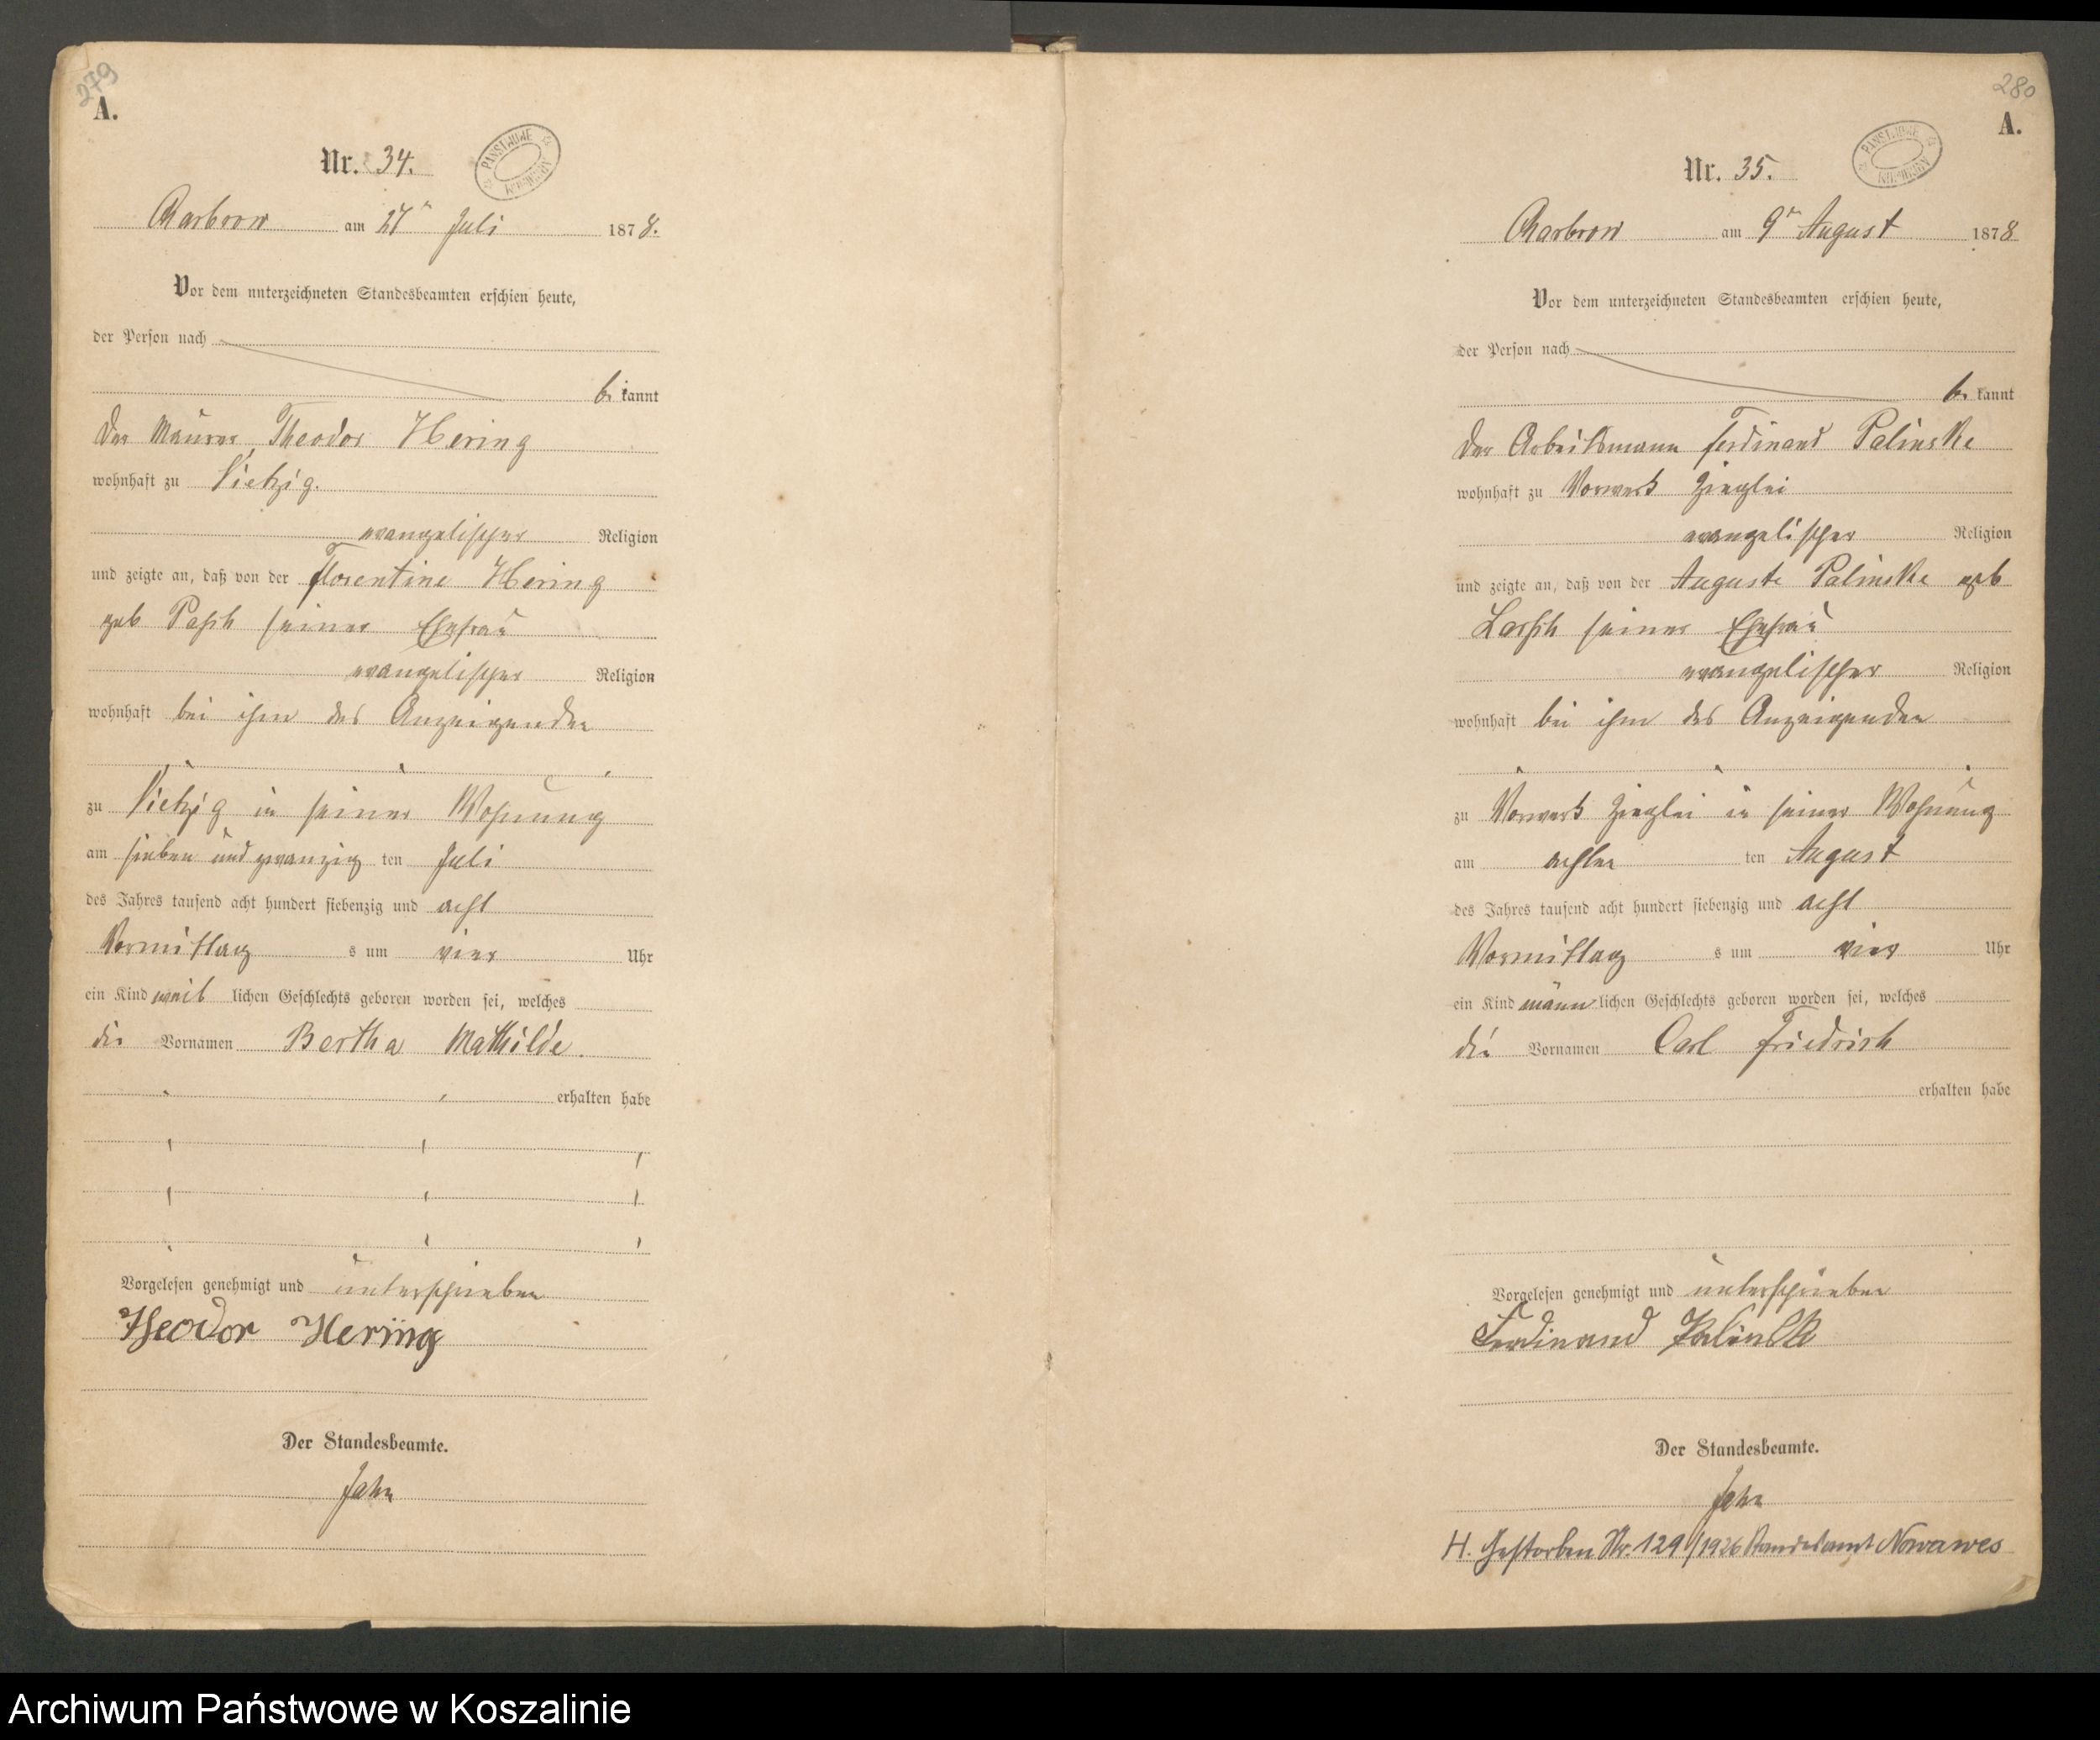 279
A.
Nr. 34.
PANSTWOWE ARCHIWUM
Charbrow am 27n Juli 1878.
Vor dem unterzeichneten Standesbeamten erschien heute,
der Person nach
be kannt
der Maurer Theodor Hering
wohnhaft zu Vietzig.
evangelischer Religion
und zeigte an, daß von der Florentine Hering
geb Pasch seiner Ehefrau
evangelischer Religion
wohnhaft bei ihm des Anzeigenden
zu Vietzig in seiner Wohnung
am sieben und zwanzig ten Juli
des Jahres tausend acht hundert siebenzig und acht
Vormittag s um vier Uhr
ein Kind weib lichen Geschlechts geboren worden sei, welches
die Vornamen Bertha Mathilde.
erhalten habe
Vorgelesen genehmigt und unterschrieben
Theodor Hering
Der Standesbeamte.
Jahn
280
A.
Nr. 35.
PANSTWOWE ARCHIWUM
Charbrow am 9n August 1878
Vor dem unterzeichneten Standesbeamten erschien heute,
der Person nach
be kannt
der Arbeitsmann Ferdinand Palinske
wohnhaft zu Vorwerk Zieglei
evangelischer Religion
und zeigte an, daß von der Auguste Palinske geb
seiner Ehefrau
evangelischer Religion
wohnhaft bei ihm des Anzeigenden
zu Vorwerk Zieglei in seiner Wohnung
am achten ten August
des Jahres tausend acht hundert siebenzig und acht
Vormittag s um vier Uhr
ein Kind männ lichen Geschlechts geboren worden sei, welches
die Vornamen Carl Friedrich
erhalten habe
Vorgelesen genehmigt und unterschrieben
Ferdinand Palinsk
Der Standesbeamte.
Jahn
H. Gestorben Nr. 129/1926 Standesamt Nowawes
Archiwum Państwowe w Koszalinie